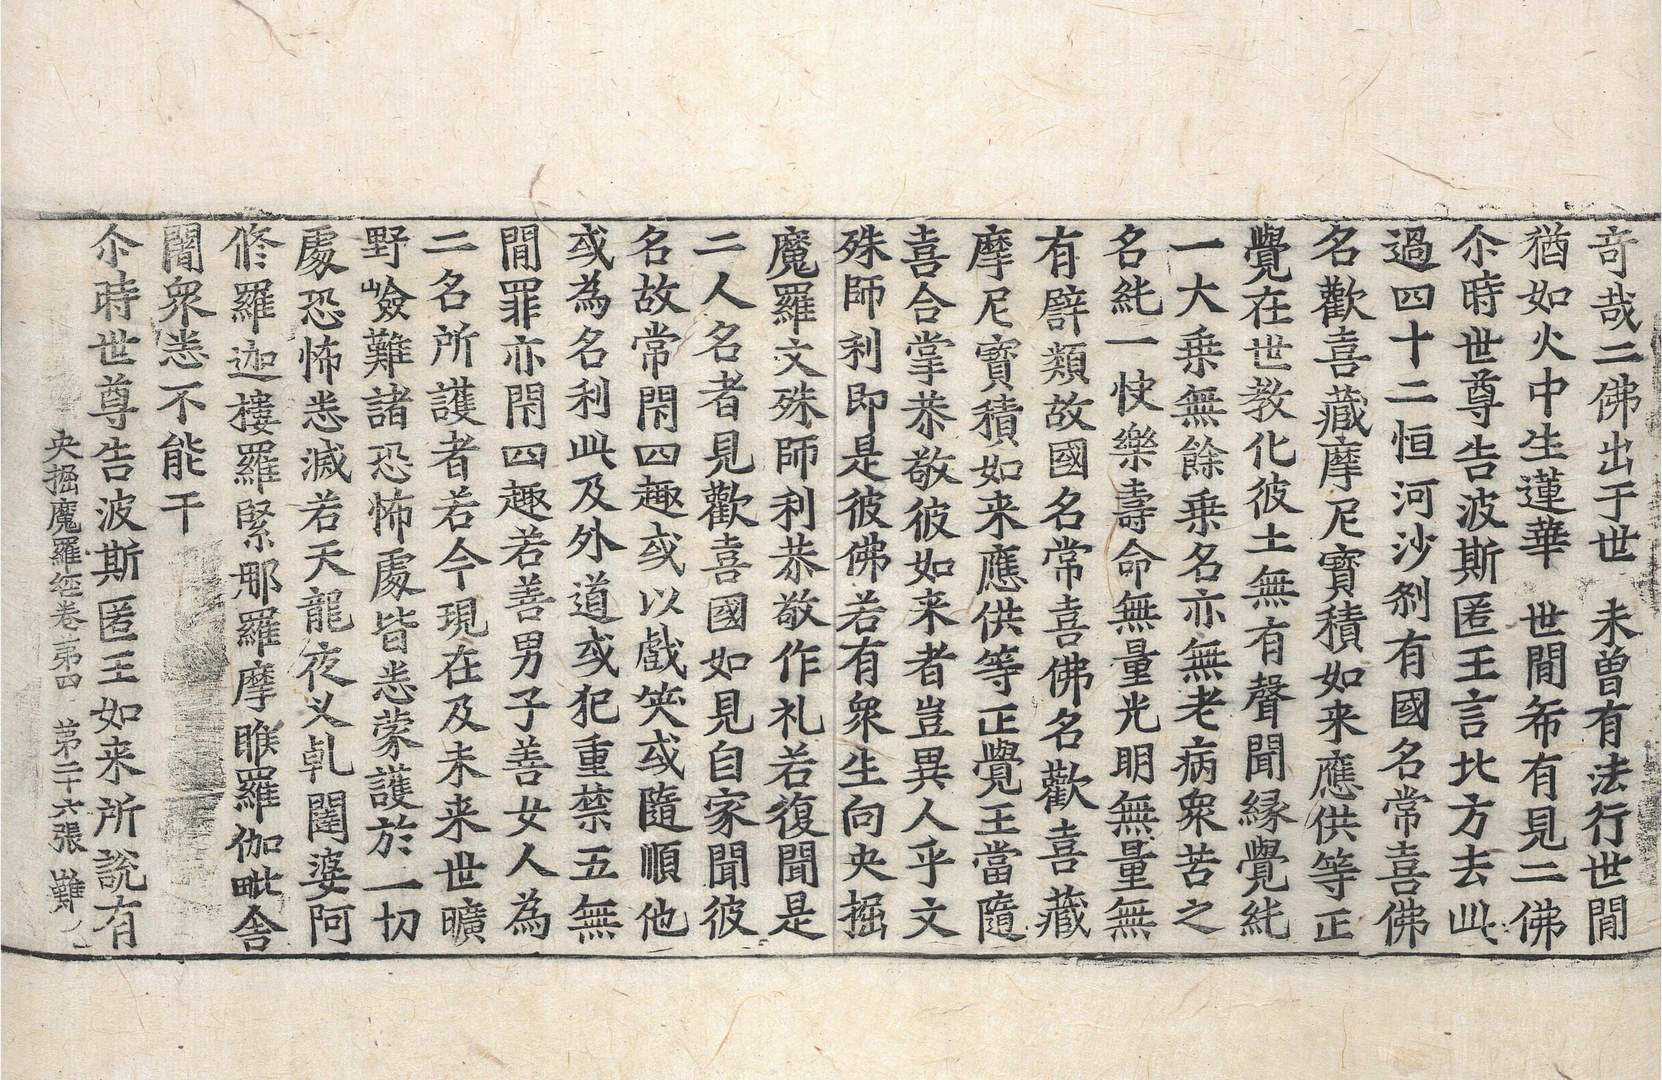 奇哉二佛出于世　未曾有法行世閒
猶如火中生蓮華　世閒希有見二佛
尒時世尊告波斯匿王言北方去此
過四十二恒河沙剎有國名常喜佛
名歡喜藏摩尼寶積如来應供等正
覺在世教化彼土無有聲聞縁覺純
一大乗無餘乗名亦無老病衆苦之
名純一快樂壽命無量光明無量無
有譬類故國名常喜佛名歡喜藏
摩尼寶積如来應供等正覺王當隨
喜合掌恭敬彼如来者豈異人乎文
殊師利即是彼佛若有衆生向央掘
魔羅文殊師利恭敬作礼若復聞是
二人名者見歡喜國如見自家聞彼
名故常閇四趣或以戲笑或隨順他
或為名利此及外道或犯重禁五無
閒罪亦閇四趣若善男子善女人為
二名所護者若今現在及未来世曠
野嶮難諸恐怖處皆悉蒙護於一切
處恐怖悉滅若天龍夜叉乹闥婆阿
脩羅迦樓羅緊那羅摩睺羅伽毗舍
闍衆悉不能干
尒時世尊告波斯匿王如来所說有
央掘魔羅經卷苐四　第二十六張　難